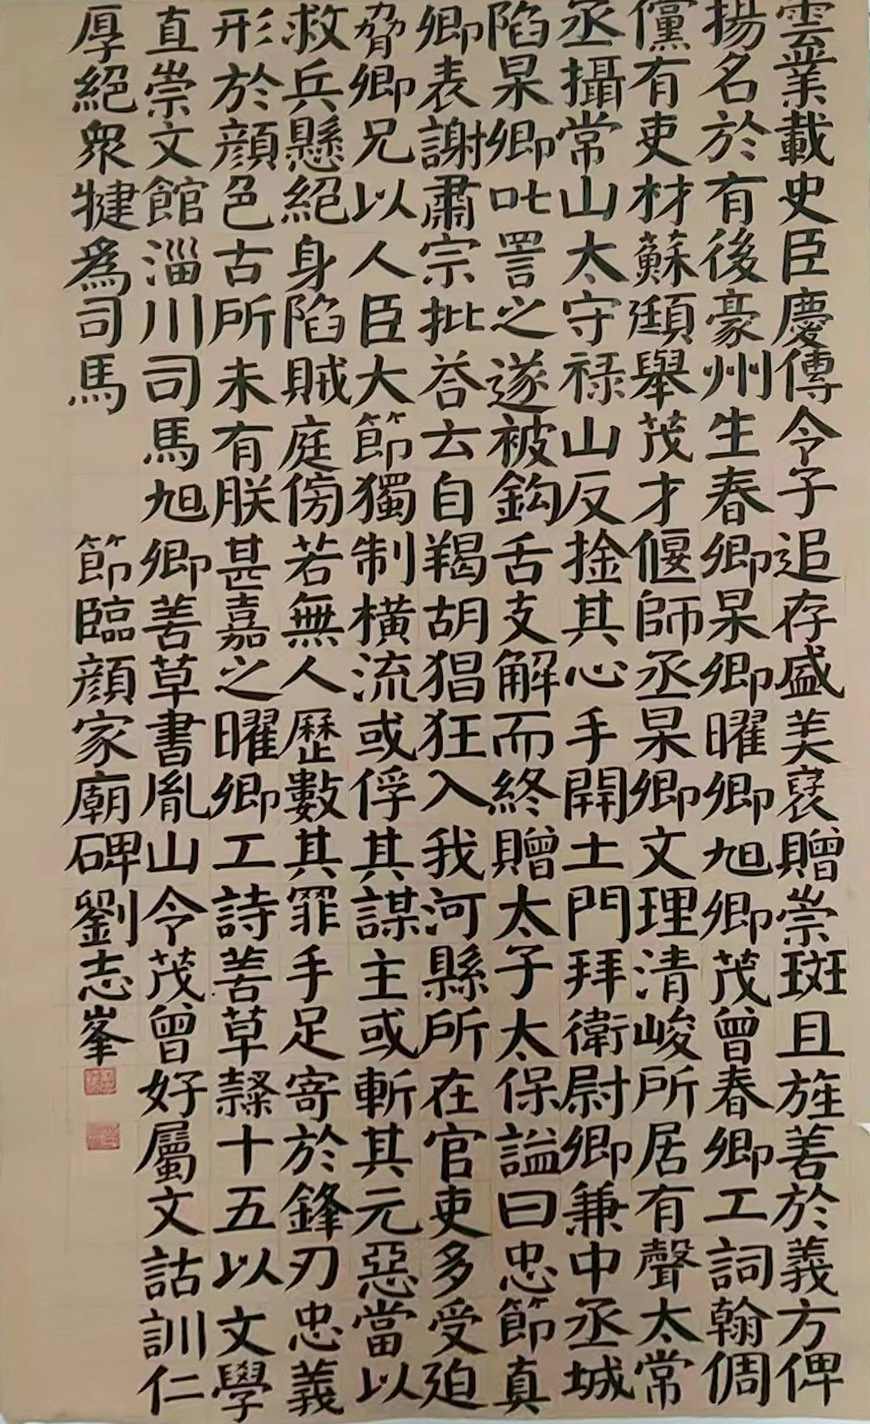 雲業載史臣慶傳令子追存盛美褒贈崇班且旌善於義方俾
揚名於有後豪州生春卿杲卿曜卿旭卿茂曾春卿工詞翰倜
儻有吏材蘇頲舉茂才偃師丞杲卿文理清峻所居有聲太常
丞攝常山太守祿山反捦其心手開土門拜衛尉卿兼中丞城
陷杲卿叱詈之遂被鈎舌支解而終贈太子太保謚曰忠節真
卿表謝肅宗批荅云自羯胡猖狂入我河縣所在官吏多受迫
脅卿兄以人臣大節獨制橫流或俘其謀主或斬其元惡當以
救兵懸絕身陷賊庭傍若無人歷數其罪手足寄於鋒刃忠義
形於顏色古所未有朕甚嘉之曜卿工詩善草隸十五以文學
直崇文館淄川司馬旭卿善草書胤山令茂曾好屬文詁訓仁
厚絕眾犍為司馬
節臨顏家廟碑劉志峯